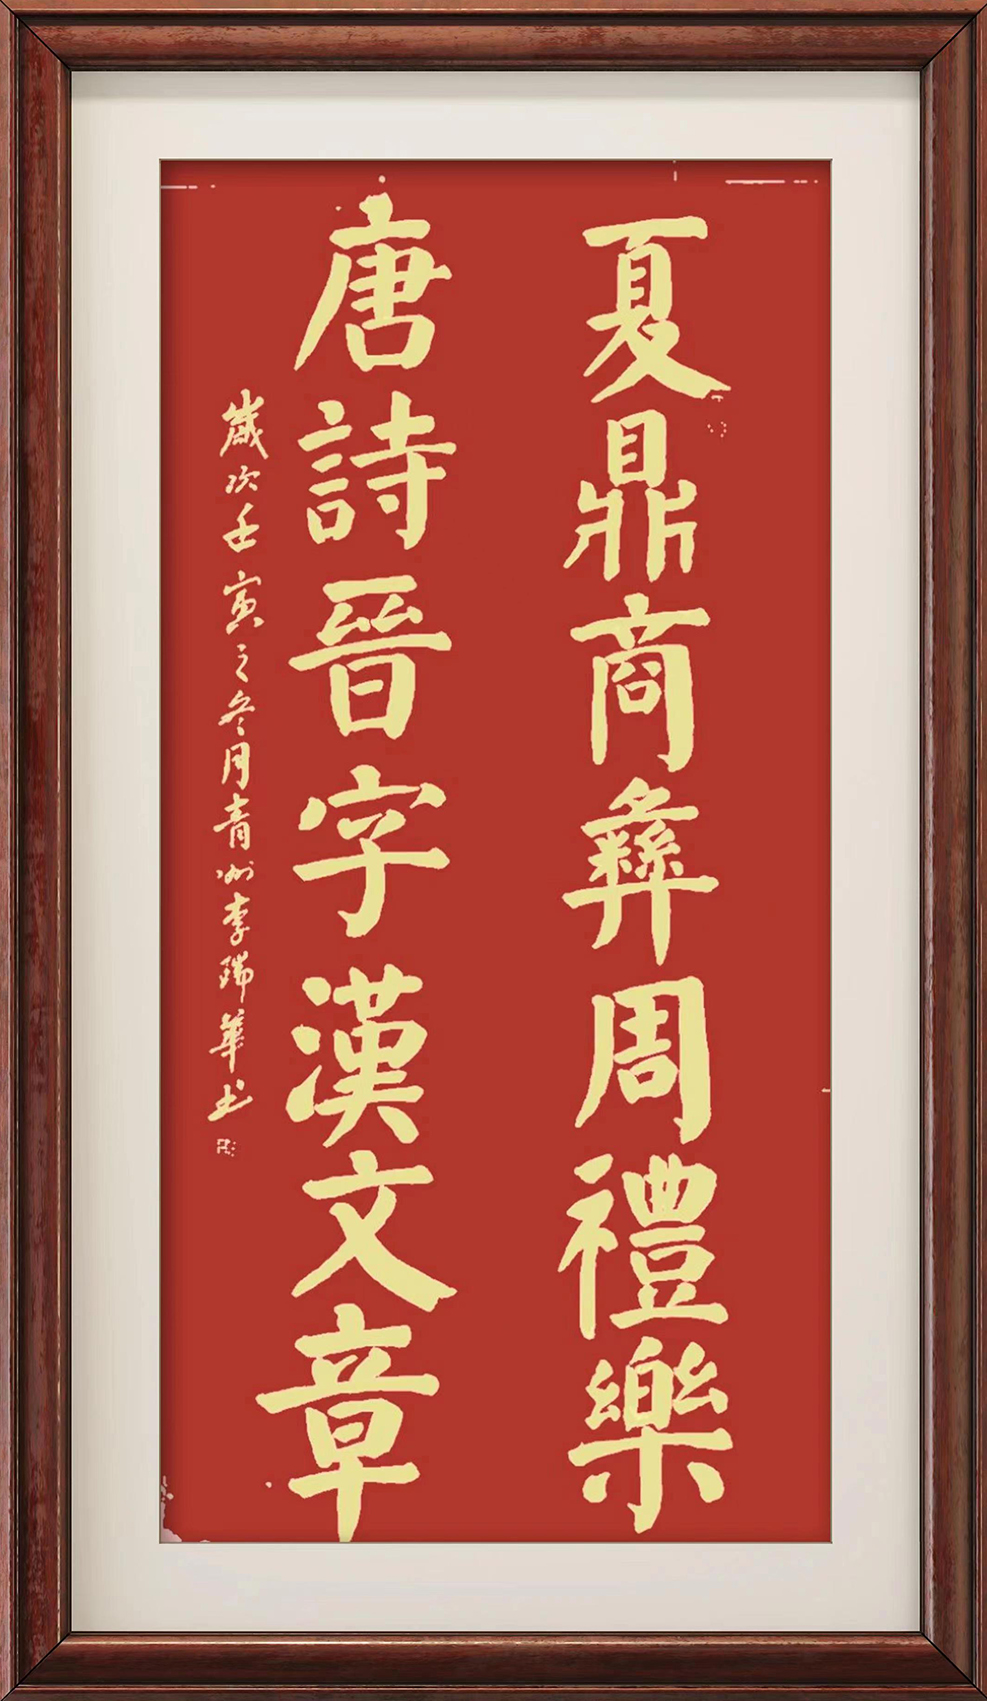 夏鼎商彝周禮樂
唐詩晉字漢文章
歲次壬寅之冬月青州李瑞華书